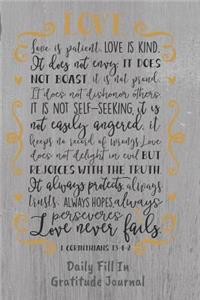 LOVE
Love is patient, LOVE IS KIND.
It does not envy. IT DOES
NOT BOAST it is not proud.
It does not dishonor others,
IT IS NOT SELF-SEEKING, it is
not easily angered, it
keeps no record of wrongs. Love
does not delight in evil BUT
REJOICES WITH THE TRUTH.
It always protects, always
trusts, ALWAYS HOPES, always
perseveres
Love never fails.
1 CORINTHIANS 13:4-8
Daily Fill In
Gratitude Journal